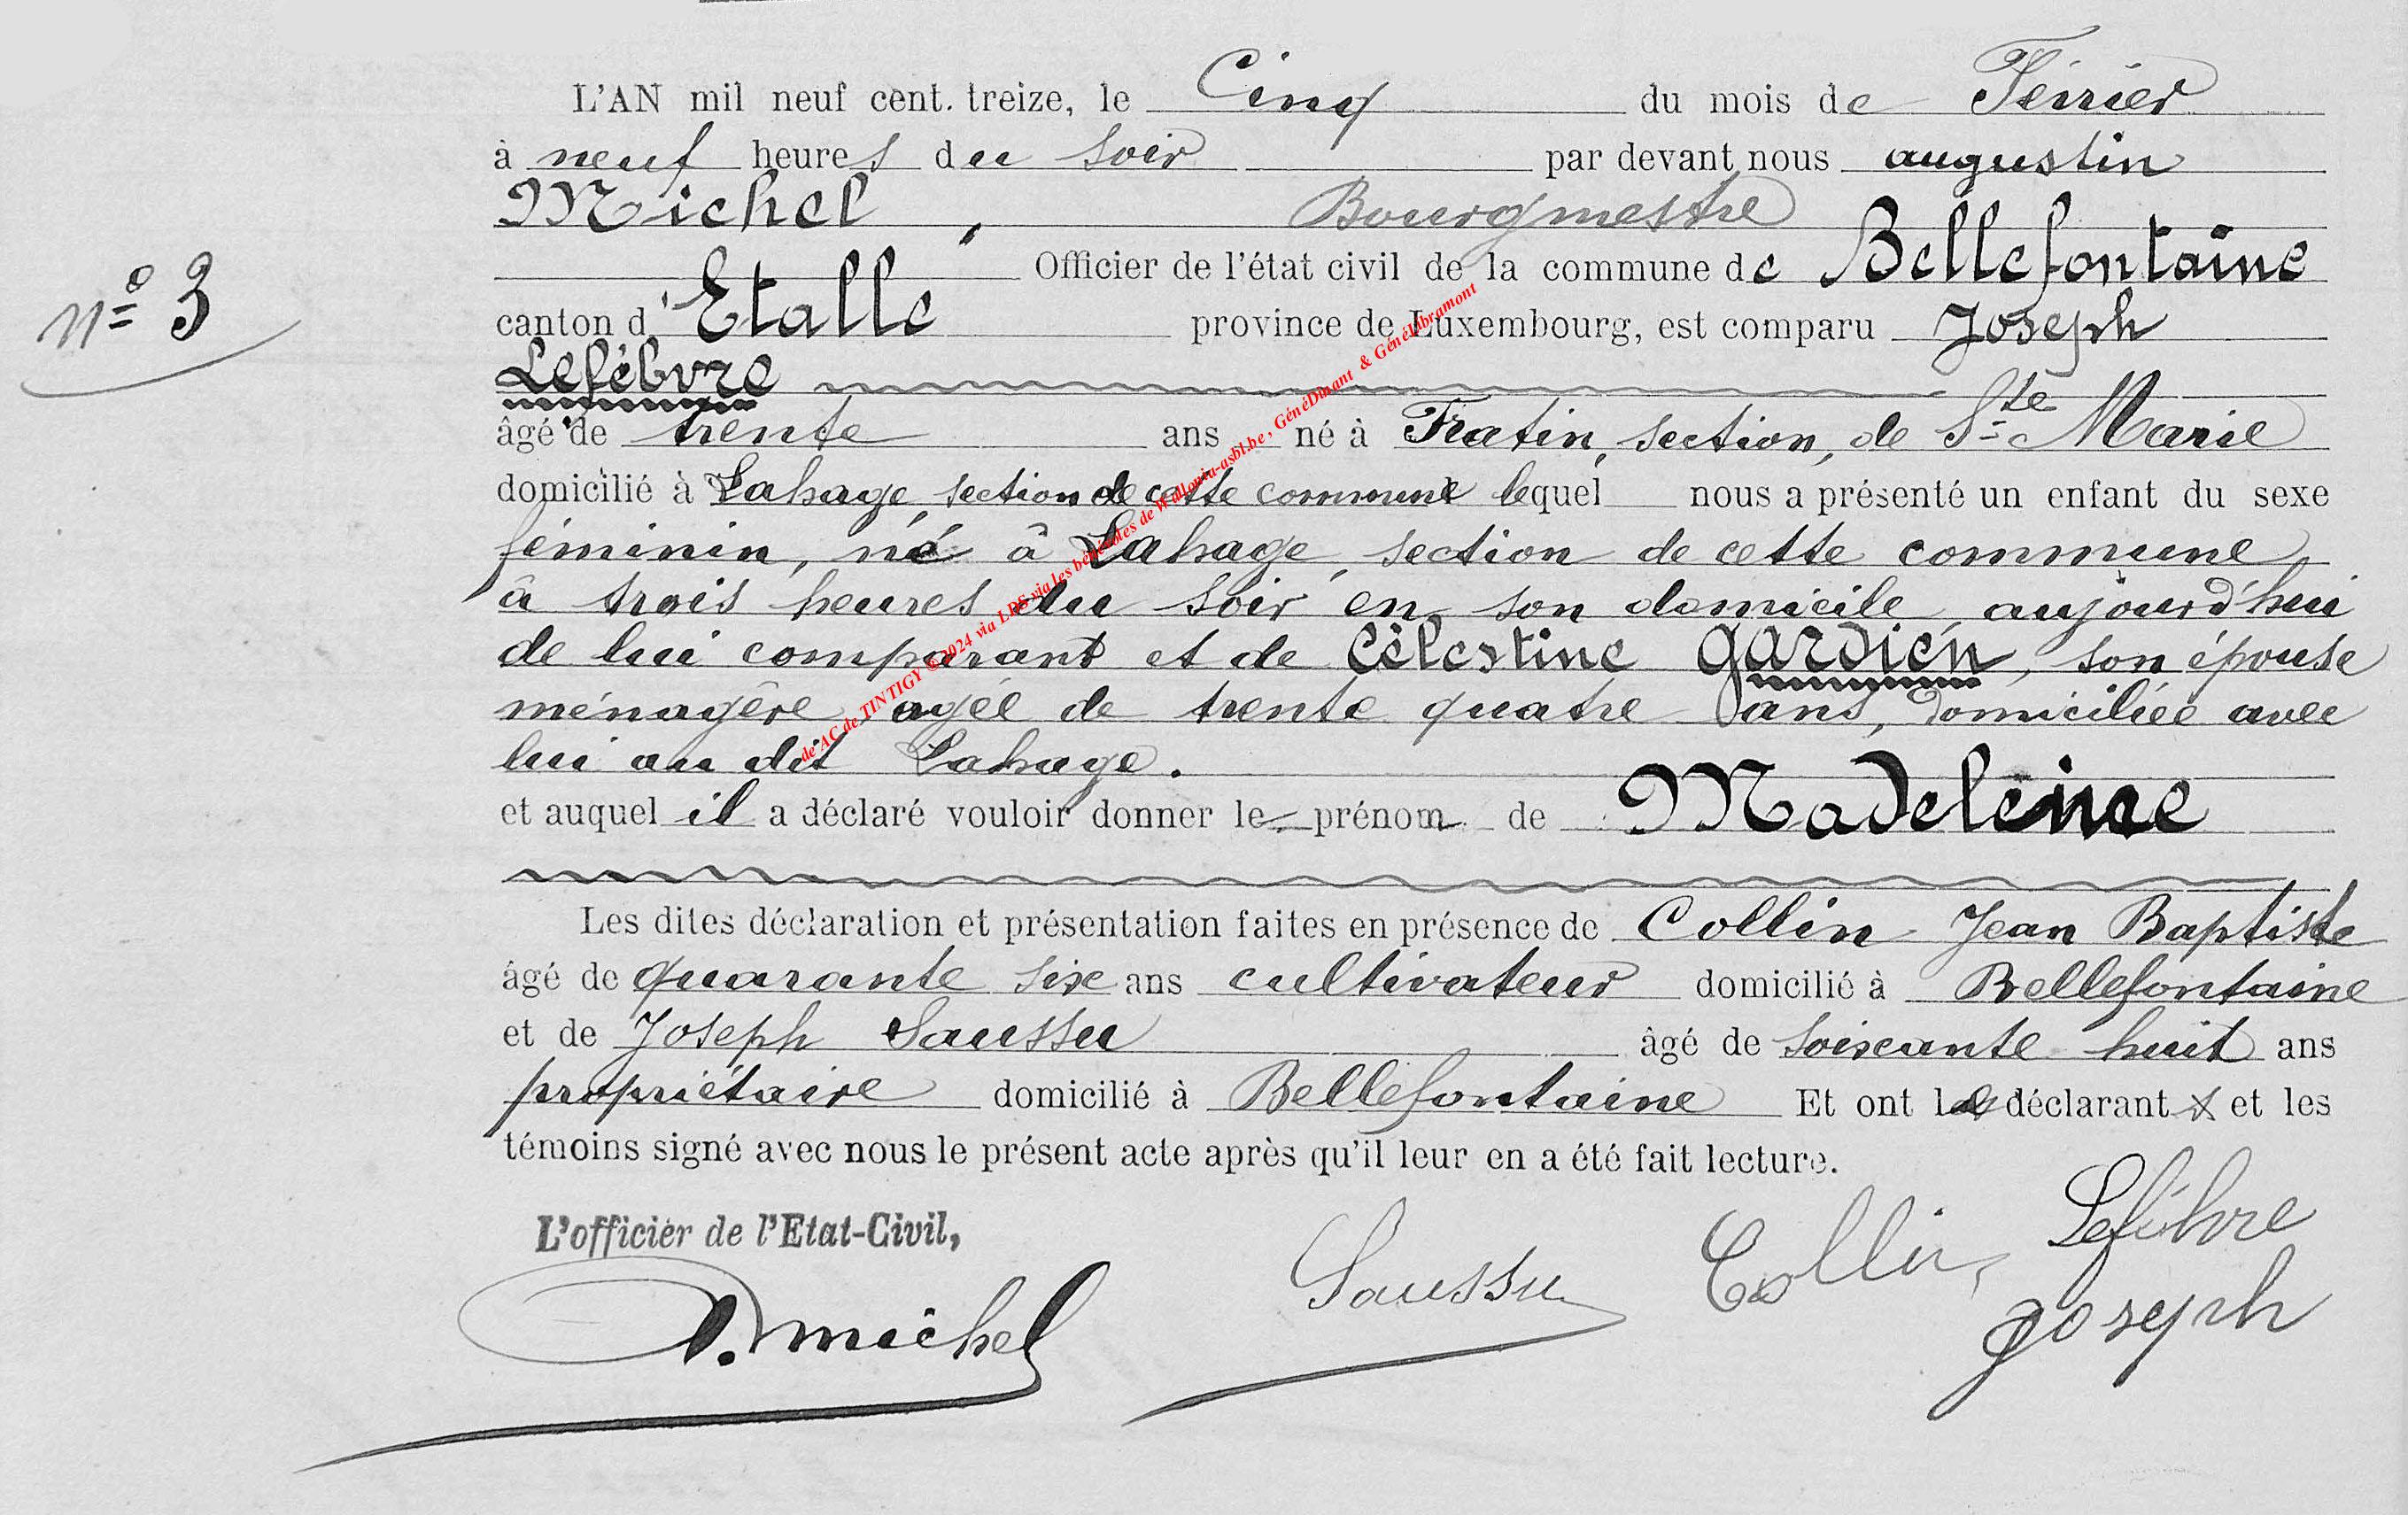 L'AN mil neuf cent. treize, le Cinq du mois de Février
à neuf heures du soir par devant nous augustin
Michel, Bourgmestre
Officier de l'état civil de la commune de Bellefontaine
n° 3
canton d'Etalle province de Luxembourg, est comparu Joseph
Lefèbvre
âgé de trente ans né à Fratin, section, de Ste Marie
domicilié à Lahage, section de cette commune lequel nous a présenté un enfant du sexe
féminin, né à Lahage, section de cette commune
à trois heures du soir en son domicile aujourd'hui
de lui comparant et de Célestine Gardien, son épouse
ménagère agée de trente quatre ans, domiciliée avec
lui au dit Lahage.
et auquel il a déclaré vouloir donner le prénom de Madeleine
Les dites déclaration et présentation faites en présence de Collin Jean Baptiste
âgé de quarante six ans cultivateur domicilié à Bellefontaine
et de Joseph Saussu âgé de soixante huit ans
propriétaire domicilié à Bellefontaine Et ont le déclarant et les
témoins signé avec nous le présent acte après qu'il leur en a été fait lecture.
L'officier de l'Etat-Civil,
A. michel
Saussu
Collin
Lefèbvre
Joseph
de AC de TINTIGY © 2024 via LDS via les bénévoles de Wallonia-asbl.be, GénéDinant & GénéLibramont